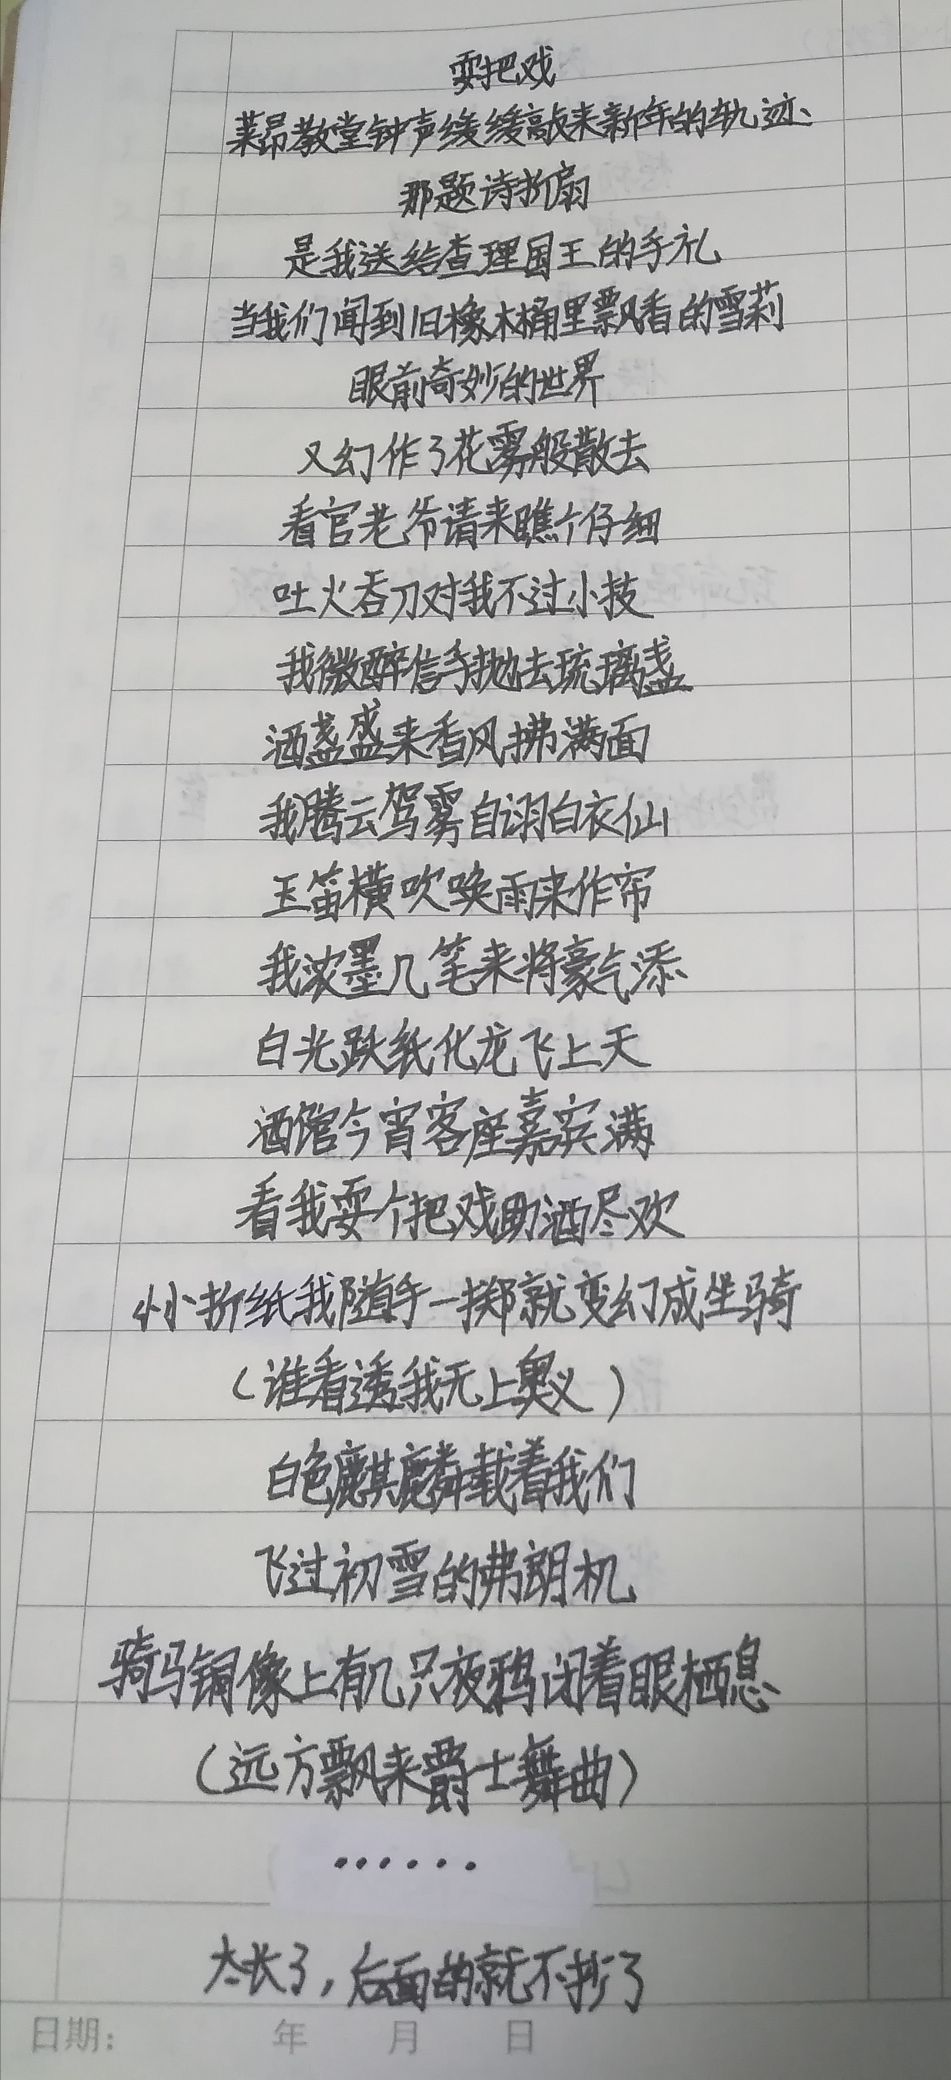 耍把戏
莱昂教堂钟声缓缓敲来新年的轨迹
那题诗折扇
是我送给查理国王的手礼
当我们闻到旧橡木桶里飘香的雪莉
眼前奇妙的世界
又幻作了花雾般散去
看官老爷请来瞧个仔细
吐火吞刀对我不过小技
我微醉信手抛去琉璃盏
酒盏盛来香风拂满面
我腾云驾雾自诩白衣仙
玉笛横吹唤雨来作帘
我浓墨几笔来将豪气添
白光跃纸化龙飞上天
酒馆今宵客座嘉宾满
看我耍个把戏助酒尽欢
小小折纸我随手一掷就变幻成坐骑
（谁看透我无上奥义）
白色麒麟载着我们
飞过初雪的弗朗机
骑马铜像上有几只夜鸦闭着眼栖息
（远方飘来爵士舞曲）
······
太长了，后面的就不抄了
日期： 年 月 日